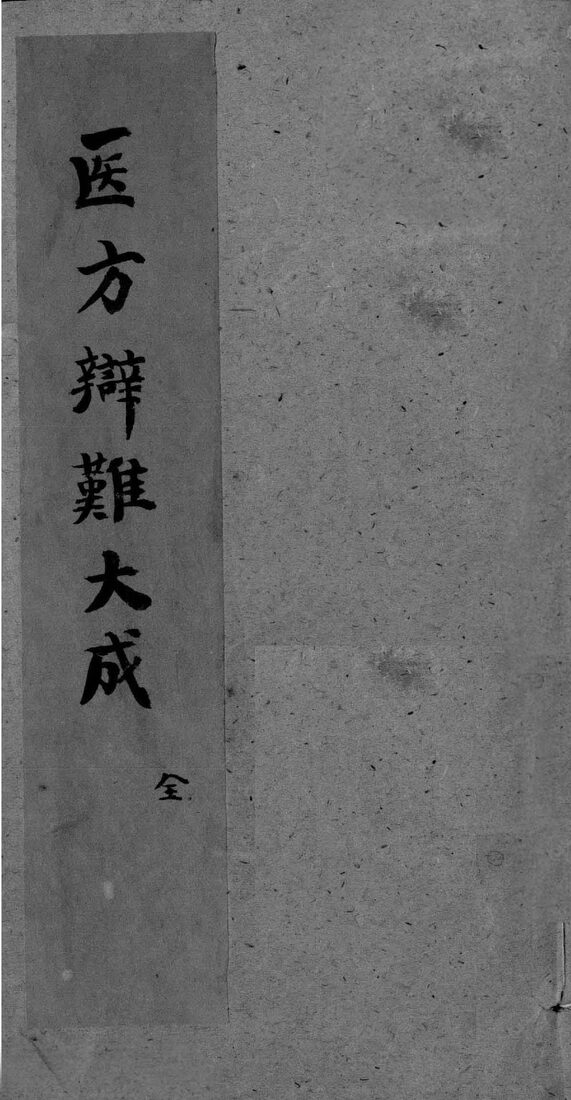 医方辯難大成
全